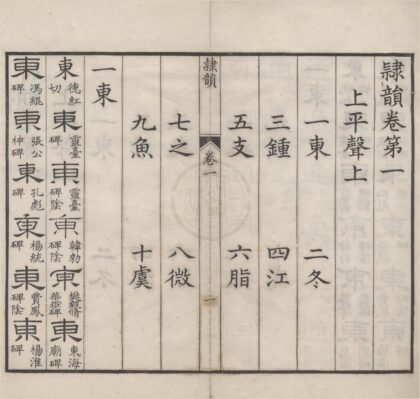 隷韻卷第一
上平聲上
一東 二冬
三鍾 四江
五支 六脂
隷韻 卷一 一
七之 八微
九魚 十虞
一東
東 德紅切 東 靈臺碑 東 靈臺碑陰 東 韓勑碑陰 東 東海廟碑
東 馮緄碑 東 張公神碑 東 孔彪碑 東 楊統碑 東 費鳳碑陰 東 楊淮碑